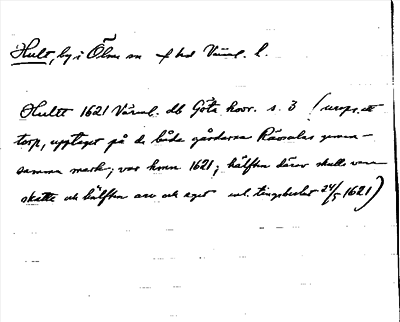 Hult, by i Ölme sn f hd Värml. l.
Hultt 1621 Värml. db Göta hovr. s. 3 (urspr. ett
torp, upptaget på de båda gårdarna Råsvalas gemen-
samma mark; var kron 1621; hälften därav skulle vara
skatte och hälften arv och eget enl. tingsbeslut 24/5 1621)